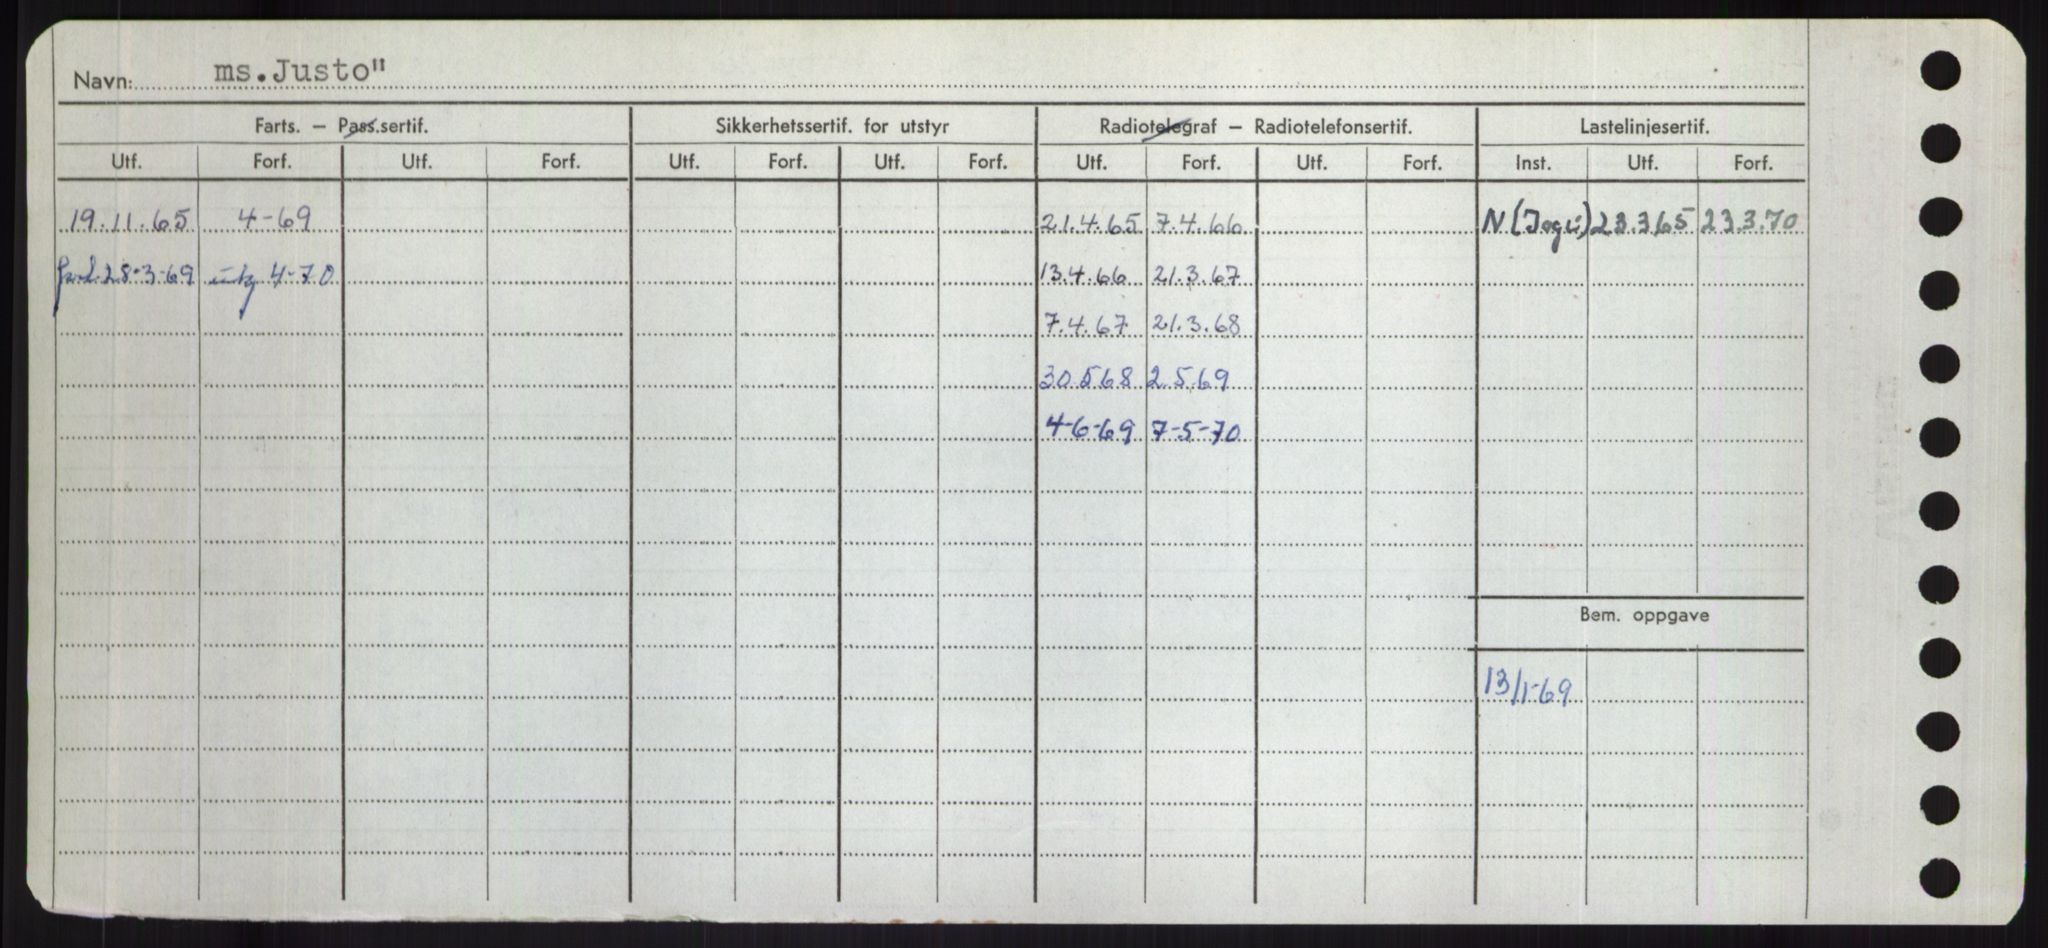 Navn: ms.Justo"
Farts. – Pass.sertif. Sikkerhetssertif. for utstyr Radiotelegraf – Radiotelefonsertif. Lastelinjesertif.
Utf. Forf. Utf. Forf. Utf. Forf. Utf. Forf. Utf. Forf. Utf. Forf. Inst. Utf. Forf.
19.11.65 4-69 21.4.65 7.4.66 N 23.3.65 23.3.70
28-3-69 4-70 13.4.66 21.3.67
7.4.67 21.3.68
30.5.68 2.5.69
4-6-69 7-5-70
Bem. oppgave
13/1-69